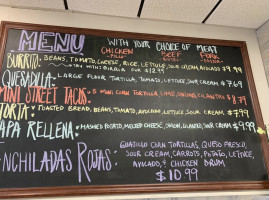 MENU
WITH YOUR CHOICE OF MEAT
CHICKEN BEEF PORK
BURRITO: BEANS, TOMATO, CHEESE, RICE, LETTUCE, SOUR CREAM, AVOCADO $9.99
FOR $12.99
QUESADILLA: LARGE FLOUR TORTILLA, TOMATO, LETTUCE, SOUR CREAM $7.69
MINI STREET TACOS: 5 MINI CORN TORTILLA, CILANTRO $8.79
TORTA: TOASTED BREAD, BEANS, TOMATO, AVOCADO, LETTUCE, SOUR CREAM $7.99
PAPA RELLENA: MASHED POTATO, MELTED CHEESE, ONION, CREAM $9.99
ENCHILADAS ROJAS: GUAJILLO CORN TORTILLAS, QUESO FRESCO,
SOUR CREAM, CARROTS, POTATO, LETTUCE,
AVOCADO, & CHICKEN DRUM
$10.99